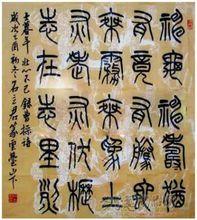 神龜雖壽猶
有竟時騰蛇
乘霧終為土
灰老驥伏櫪
志在千里烈
士暮年壯心不已錄曹操詩
歲次乙酉初冬